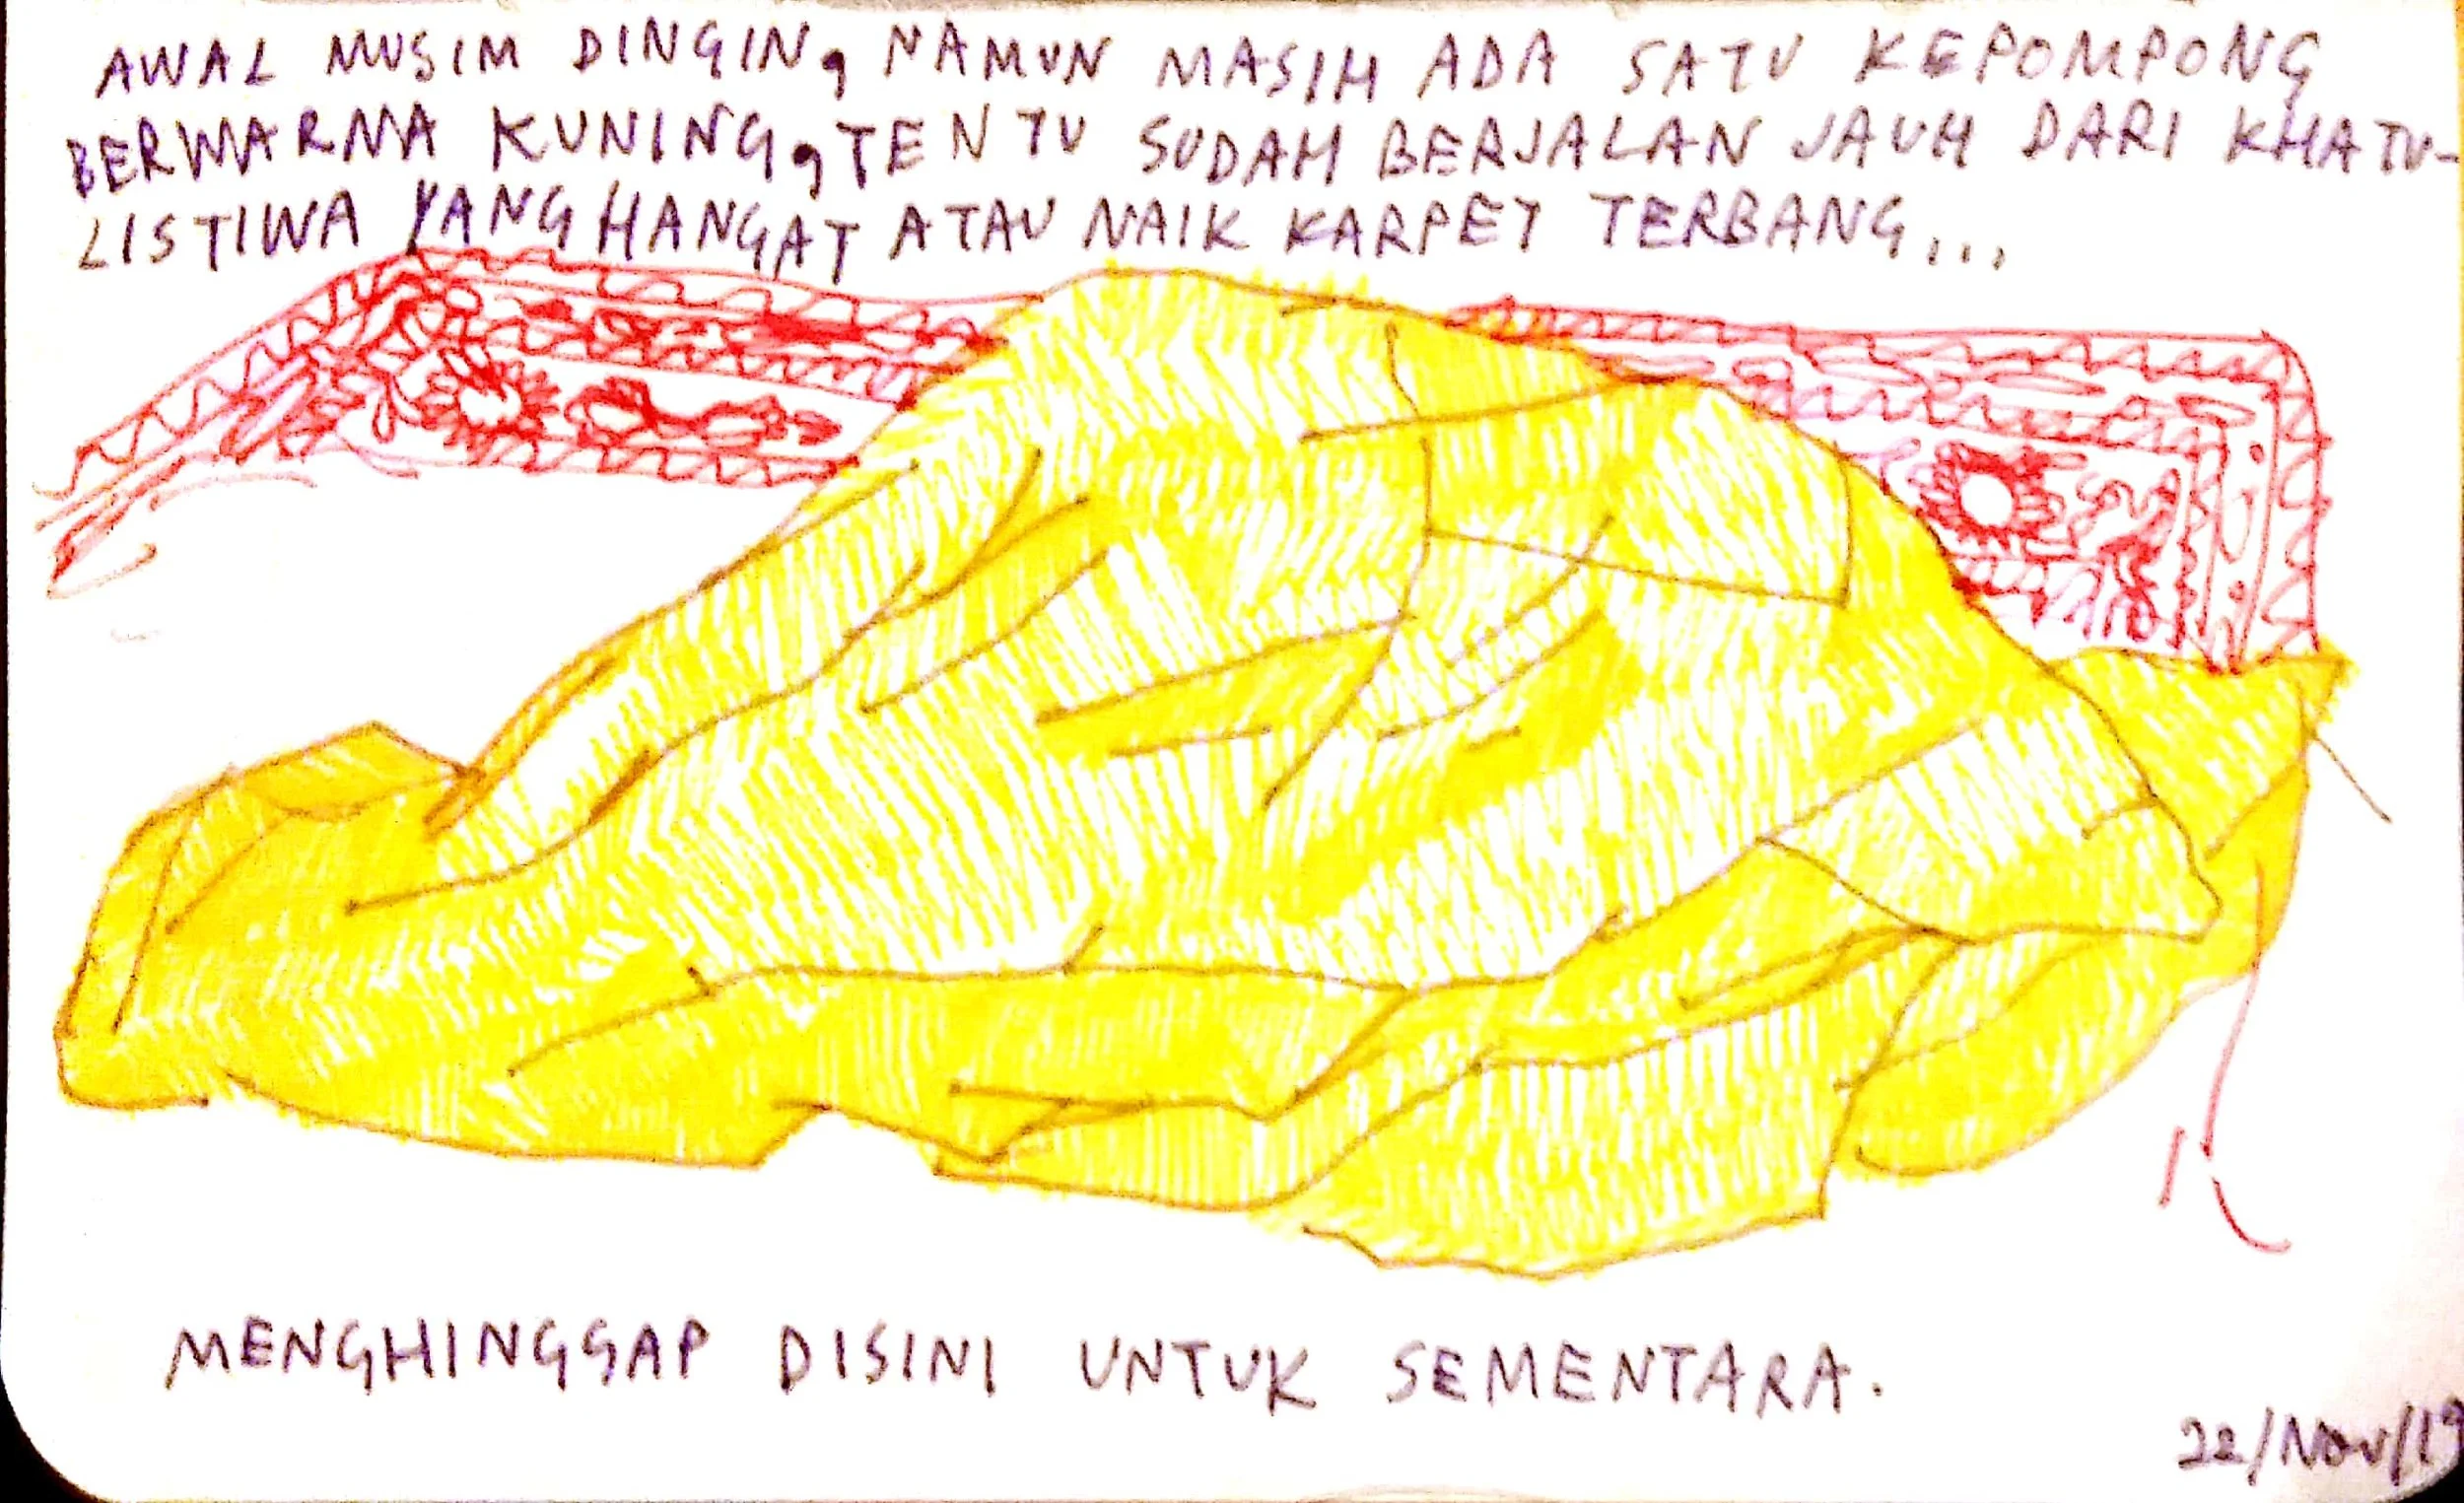 AWAL MUSIM DINGIN, NAMUN MASIH ADA SATU KEPOMPONG
BERWARNA KUNING, TENTU SUDAH BERJALAN JAUH DARI KHATU-
LISTIWA YANG HANGAT ATAU NAIK KARPET TERBANG...
MENGHINGGAP DISINI UNTUK SEMENTARA.
22/Nov/19